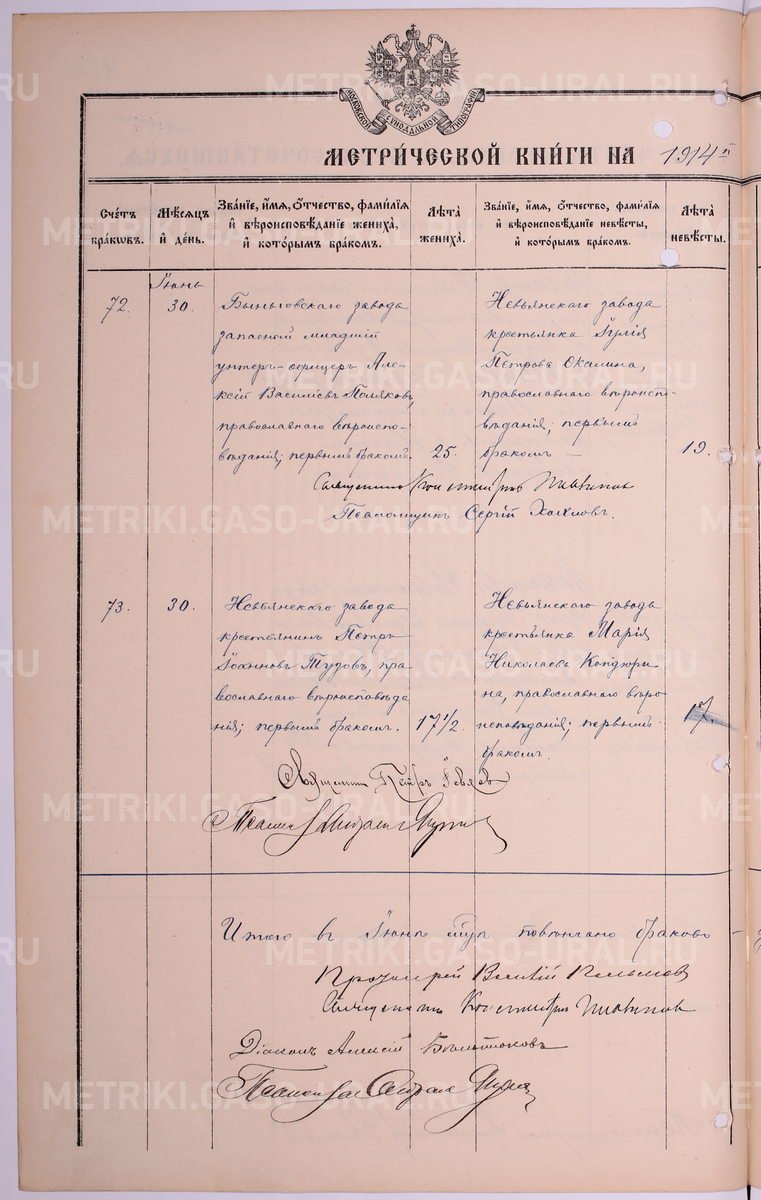 МОСКОВСКОЙ СѴНОДАЛЬНОЙ ТИПОГРАФІИ
МЕТРИ́ЧЕСКОЙ КНИ́ГИ НА 1914 г.
Сче́тъ бра́кѡвъ.
Мѣ́сѧцъ и҆ де́нь.
Зва́нїе, и҆́мѧ, ѻ҆́тчество, фами́лїѧ и҆ вѣроисповѣ́данїе жениха̀, и҆ кото́рымъ бра́комъ.
Лѣ́та жениха̀.
Зва́нїе, и҆́мѧ, ѻ҆́тчество, фами́лїѧ и҆ вѣроисповѣ́данїе невѣ́сты, и҆ кото́рымъ бра́комъ.
Лѣ́та невѣ́сты.
Іюнь
72.
30.
Быньговскаго завода
запасной младшій
унтеръ-офицеръ Але-
ксій Васильевъ Поляковъ,
православнаго вѣроиспо-
вѣданія; первымъ бракомъ.
25.
Невьянскаго завода
крестьянка Іулія
Петрова Окалина,
православнаго вѣроиспо-
вѣданія; первымъ
бракомъ —
19.
Священникъ
Псаломщикъ Сергій Хохловъ.
73.
30.
Невьянскаго завода
крестьянинъ Петръ
Іоанновъ Тудовъ, пра
вославнаго вѣроисповѣда
нія; первымъ бракомъ.
17 1/2.
Невьянскаго завода
крестьянка Марія
Николаева Кондюри
на, православнаго вѣро
исповѣданія; первымъ
бракомъ.
17.
Священникъ Петръ
Итого въ Іюнѣ м-цѣ повѣнчано браковъ —
Протоіерей Василій
Священникъ
Діаконъ Алексій
METRIKI.GASO-URAL.RU